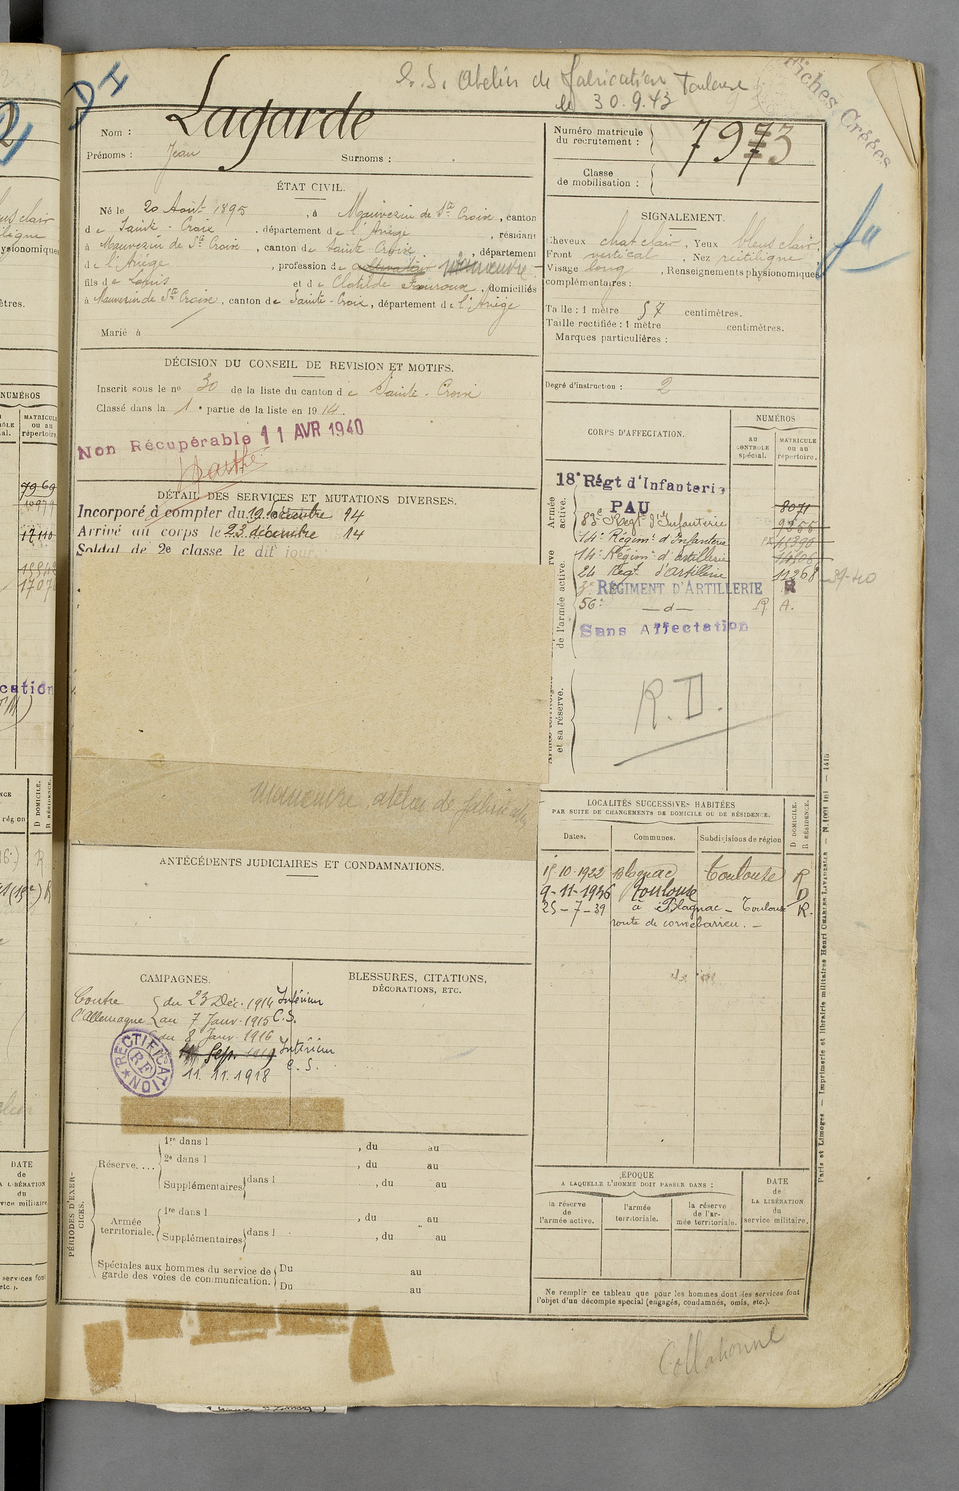 Atelier de fabrication Toulouse
le 30.9.43
Fiches Créées
DH
Nom : Lagarde
Prénoms : Jean Surnoms :
Numéro matricule du recrutement : 7973
Classe de mobilisation :
ÉTAT CIVIL.
Né le 20 Août 1895, à Mauvezin de Ste Croix, canton
de Sainte-Croix, département de l'Ariège, résidant
à Mauvezin de Ste Croix, canton de Sainte Croix, département
de l'Ariège, profession de cultivateur manœuvre
fils de Louis et de Clotilde Fouroux, domiciliés
à Mauvezin de Ste Croix, canton de Sainte-Croix, département de l'Ariège
Marié à
SIGNALEMENT.
Cheveux chat clair, Yeux bleus clair,
Front vertical, Nez rectiligne
Visage long, Renseignements physionomiques
complémentaires :
Taille : 1 mètre 57 centimètres.
Taille rectifiée : 1 mètre centimètres.
Marques particulières :
Degré d'instruction : 2
DÉCISION DU CONSEIL DE REVISION ET MOTIFS.
Inscrit sous le no 30 de la liste du canton de Sainte-Croix
Classé dans la 1e partie de la liste en 1914.
Non Récupérable 11 AVR 1940
DÉTAIL DES SERVICES ET MUTATIONS DIVERSES.
Incorporé à compter du 19 décembre 14
Arrivé au corps le 23 décembre 14
Soldat de 2e classe le dit jour
manœuvre atelier de fabrication
CORPS D'AFFECTATION.
NUMÉROS
AU CONTROLE spécial.
MATRICULE ou au répertoire.
Armée active.
18e Régt d'Infanterie
PAU
8071
83e Régt d'Infanterie
14e Régim. d'Infanterie
14e Régim. d'artillerie
24 Régt d'Artillerie 11268 39-40
RÉGIMENT D'ARTILLERIE R
56e —d— R A.
Sans Affectation
de l'armée active.
et sa réserve.
R.D.
LOCALITÉS SUCCESSIVES HABITÉES
PAR SUITE DE CHANGEMENTS DE DOMICILE OU DE RÉSIDENCE.
Dates. Communes. Subdivisions de région
D. DOMICILE. R. RÉSIDENCE.
15-10-1922 Blagnac Toulouse R
9-11-1936 Toulouse D
25-7-39 à Blagnac - Toulouse R.
route de cornebarrieu. -
ANTÉCÉDENTS JUDICIAIRES ET CONDAMNATIONS.
CAMPAGNES.
Contre l'Allemagne
du 23 Déc. 1914 Intérieur
au 7 Janv. 1915 C.S.
du 8 Janv. 1916 Intérieur
Sep. 1919 C.S.
11.11.1918
RECTIFICATION RF
BLESSURES, CITATIONS,
DÉCORATIONS, ETC.
PÉRIODES D'EXERCICES.
Réserve....
1re dans l , du au
2e dans l , du au
Supplémentaires dans l , du au
Armée territoriale.
1re dans l , du au
Supplémentaires dans l , du au
Spéciales aux hommes du service de garde des voies de communication.
Du au
Du au
ÉPOQUE
A LAQUELLE L'HOMME DOIT PASSER DANS :
la réserve de l'armée active.
l'armée territoriale.
la réserve de l'armée territoriale.
DATE de LA LIBÉRATION du service militaire.
Ne remplir ce tableau que pour les hommes dont les services font
l'objet d'un décompte spécial (engagés, condamnés, omis, etc.).
Paris et Limoges — Imprimerie et librairie militaires Henri CHARLES-LAVAUZELLE
Collationné